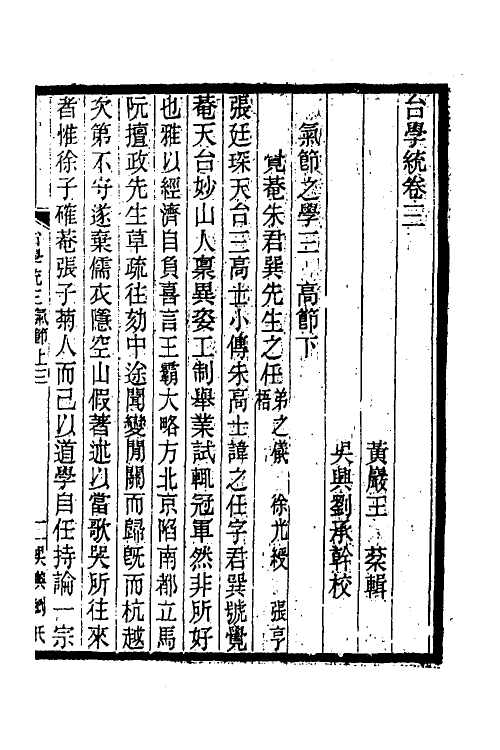 台學統卷三
黃巖王棻輯
吳興劉承幹校
氣節之學三 高節下
覺菴朱君巽先生之任 弟之儀 徐光綬 張亨梧
張廷琛天台三高士小傳朱高士諱之任字君巽號覺
菴天台妙山人稟異姿工制舉業試輒冠軍然非所好
也雅以經濟自負喜言王霸大略方北京陷南都立馬
阮擅政先生草疏往劾中途聞變閒關而歸旣而杭越
次第不守遂棄儒衣隱空山假著述以當歌哭所往來
者惟徐子確菴張子菊人而已以道學自任持論一宗
台學統三 氣節上三 一 吳興劉氏